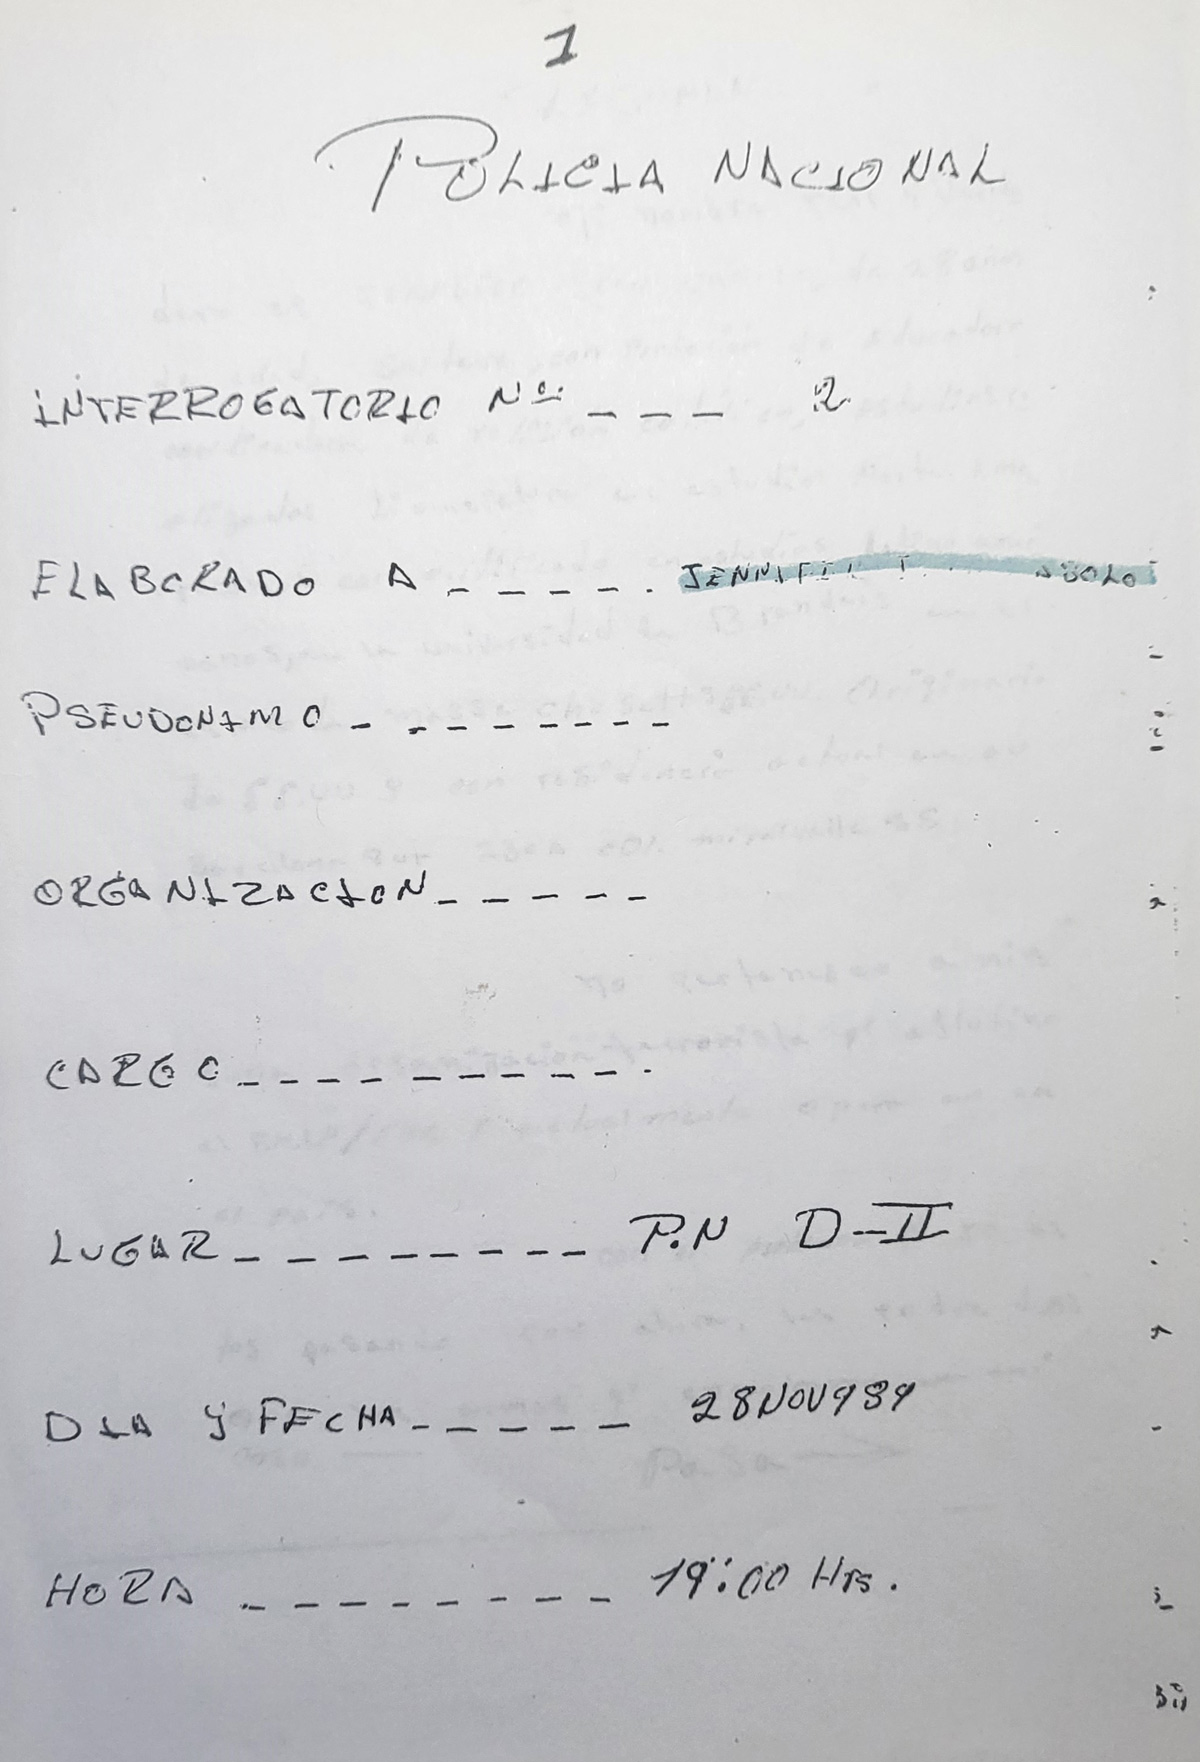 1
POLICIA NACIONAL
INTERROGATORIO Nº. _ _ _ 2
ELABORADO A _ _ _ _ _ .
PSEUDONIMO _ _ _ _ _ _ _ _
ORGANIZACION _ _ _ _ _
CARGO _ _ _ _ _ _ _ _ _ _ .
LUGAR _ _ _ _ _ _ _ _ P.N D-II
DIA Y FECHA _ _ _ _ _ 28NOV989
HORA _ _ _ _ _ _ _ _ 19:00 Hrs.